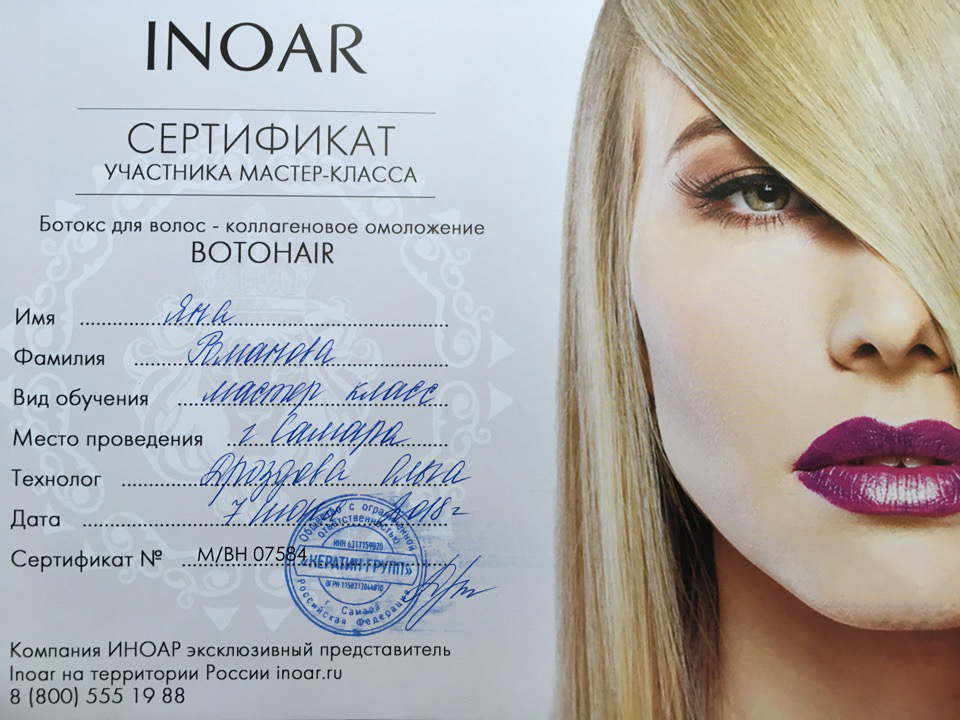 INOAR
СЕРТИФИКАТ
УЧАСТНИКА МАСТЕР-КЛАССА
Ботокс для волос - коллагеновое омоложение
BOTOHAIR
Имя Яна
Фамилия
Вид обучения мастер класс
Место проведения г Самара
Технолог Дроздова Ольга
Дата 7 2018 г
Сертификат № М/ВН 07584
Общество с ограниченной
ответственностью
ИНН 6317159920
«КЕРАТИН ГРУПП»
г. Самара
Российская Федерация
Компания ИНОАР эксклюзивный представитель
Inoar на территории России inoar.ru
8 (800) 555 19 88